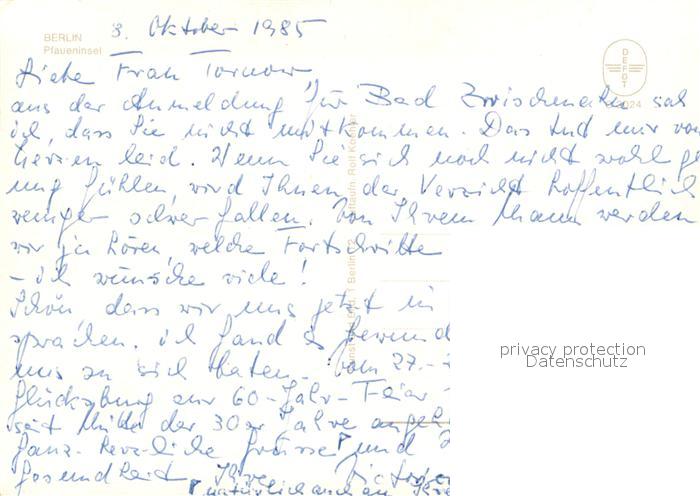 BERLIN
Pfaueninsel
3. Oktober 1985
Liebe Frau Tornow,
aus der Anmeldung für Bad Zwischenahn sah
ich, dass Sie nicht mitkommen. Das tut mir von
Herzen leid. Wenn Sie sich noch nicht wohl ge
nug fühlen, wird Ihnen der Verzicht hoffentlich
weniger schwer fallen. Von Ihrem Mann werden
wir ja hören, welche Fortschritte
– ich wünsche viele!
Schön, dass wir uns jetzt in
sprachen. Ich fand es
uns zu sich baten. Vom 27.-
Glücksburg zur 60-Jahr-Feier
seit Mitte der 30er Jahre
Ganz herzliche Grüsse und
Gesundheit Ihre
natürlich auch an Ihre
DEFOT
privacy protection
Datenschutz